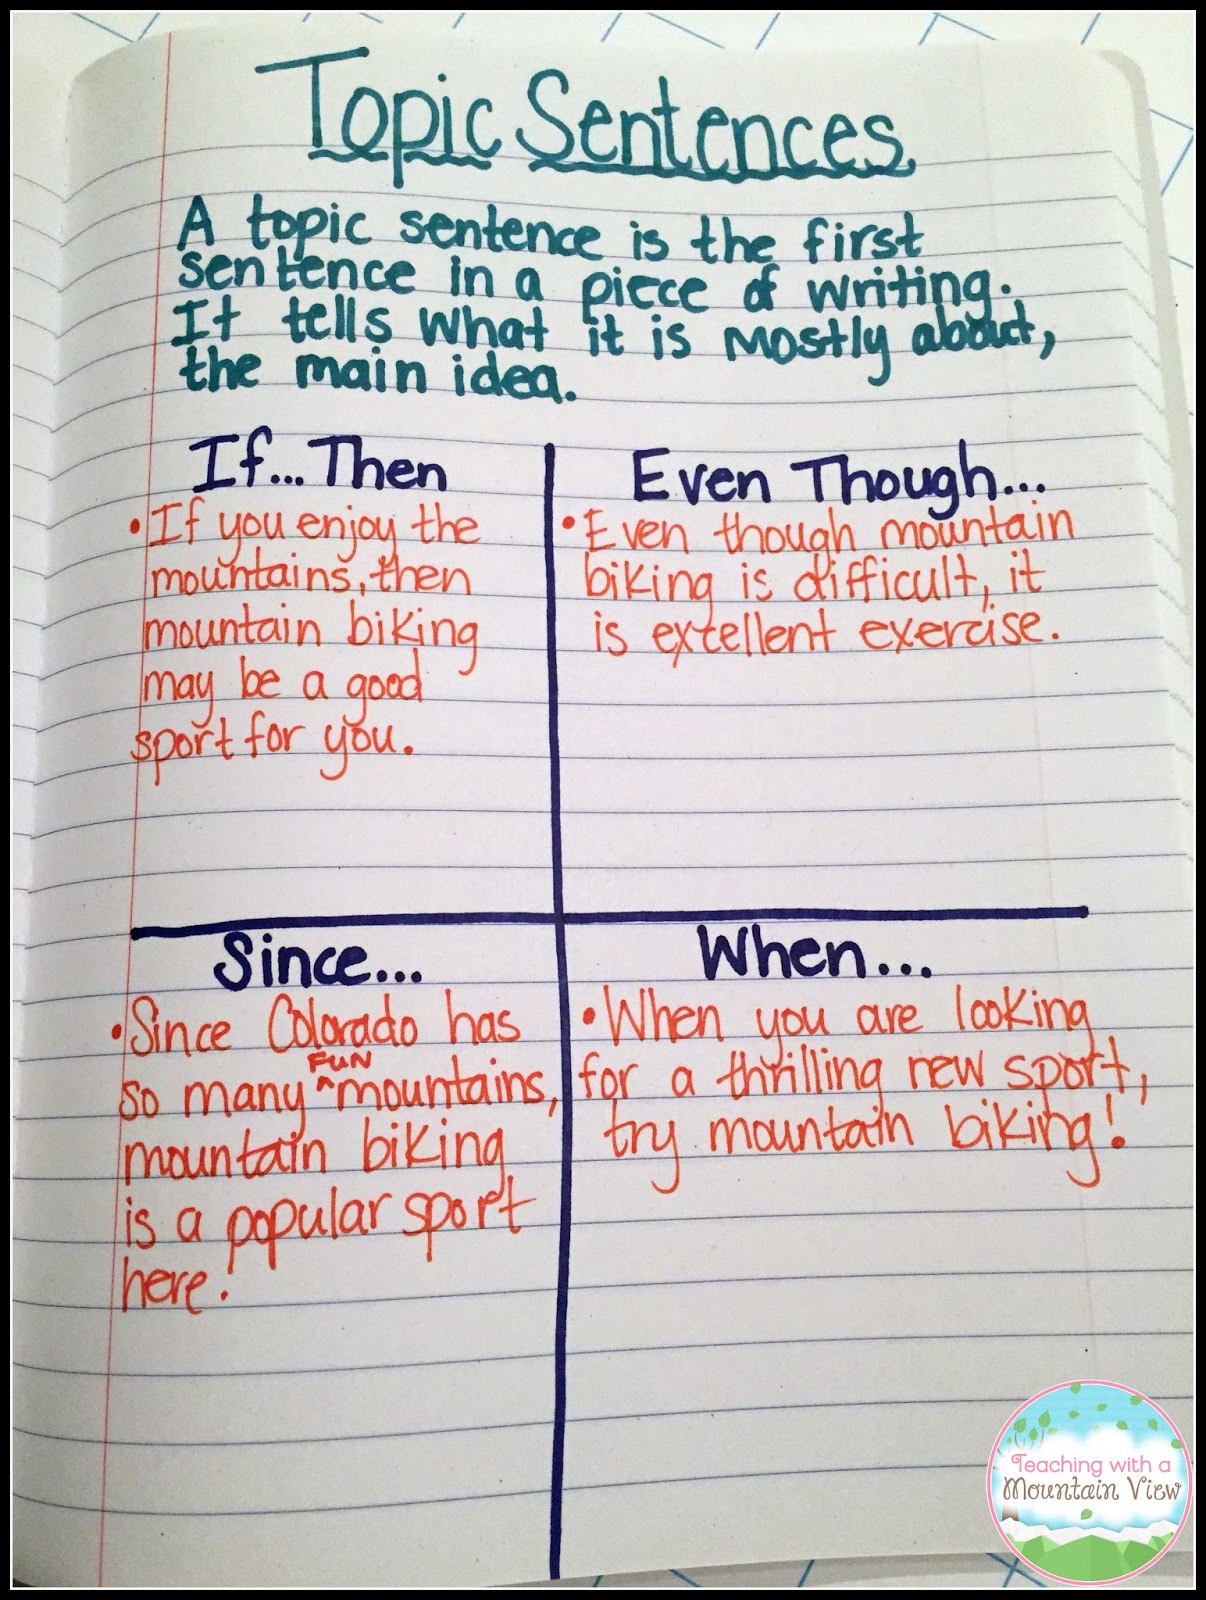 Topic Sentences
A topic sentence is the first
sentence in a piece of writing.
It tells what it is mostly about,
the main idea.
If...Then
• If you enjoy the
mountains, then
mountain biking
may be a good
sport for you.
Even Though...
• Even though mountain
biking is difficult, it
is excellent exercise.
Since...
• Since Colorado has
FUN
so many ^ mountains,
mountain biking
is a popular sport
here!
When...
• When you are looking
for a thrilling new sport,
try mountain biking!
Teaching with a
Mountain View